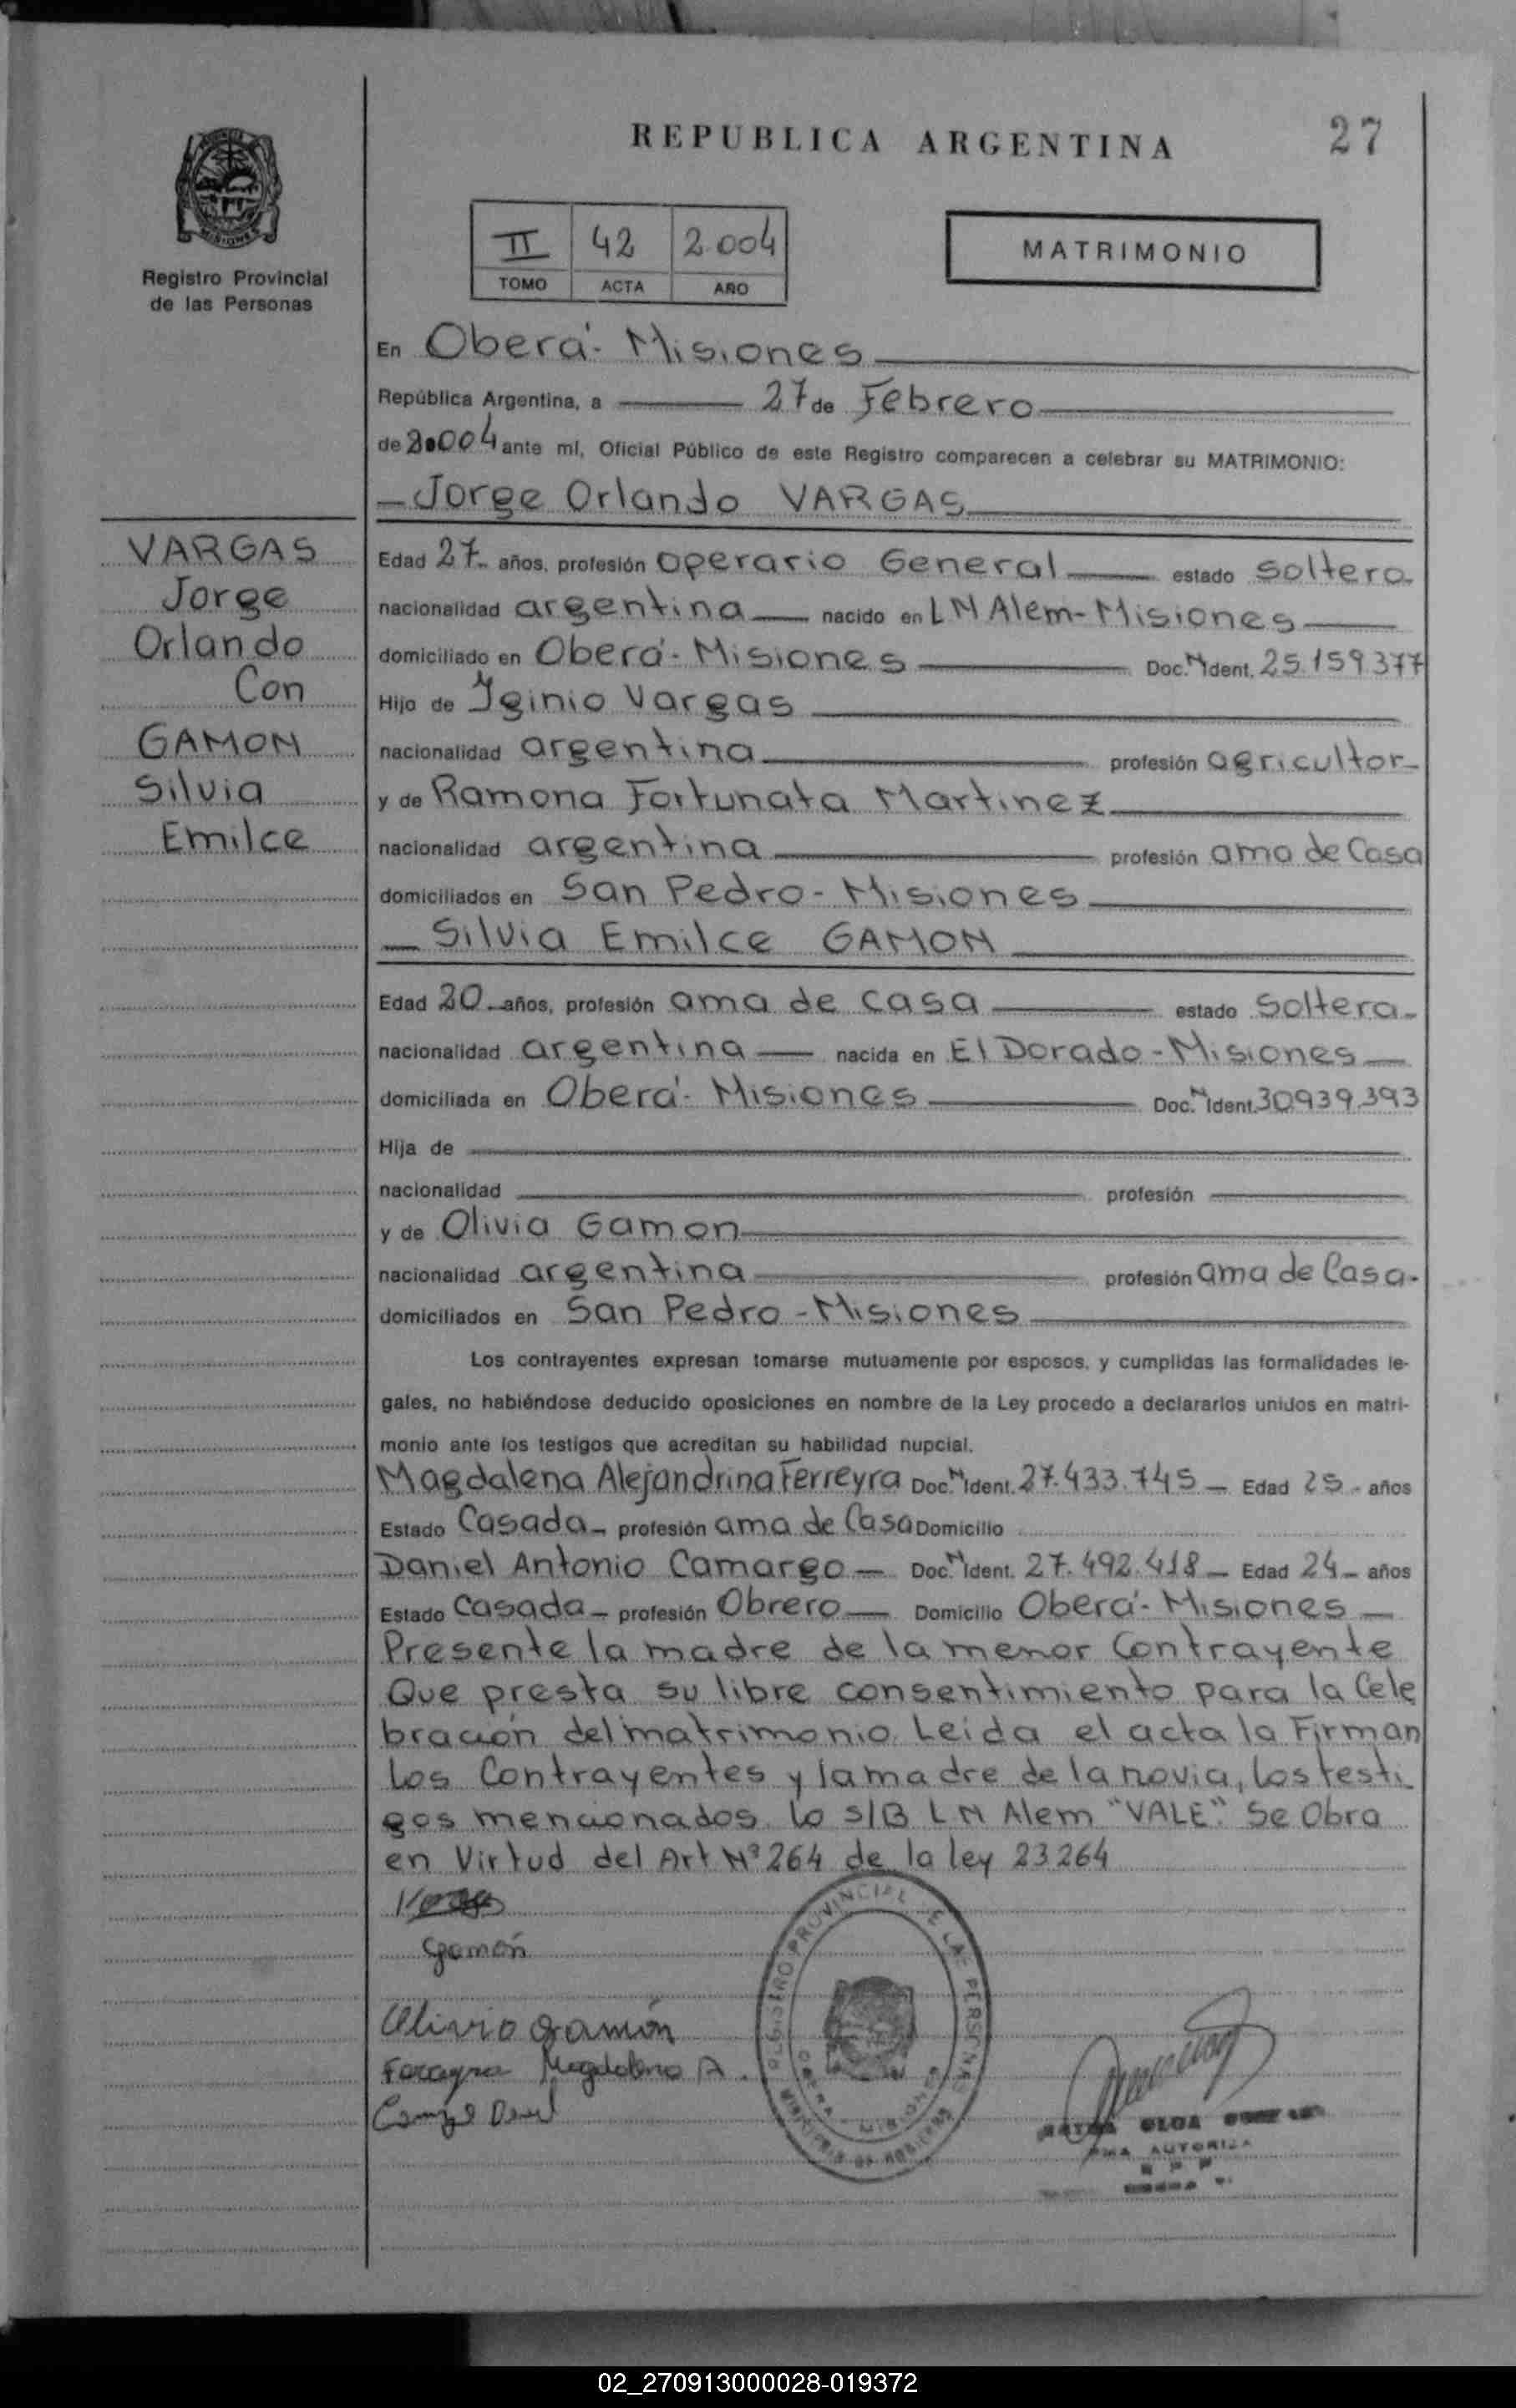 REPUBLICA ARGENTINA
27
Registro Provincial
de las Personas
II 42 2.004
TOMO ACTA AÑO
MATRIMONIO
En Oberá - Misiones
República Argentina, a 27 de Febrero
de 2.004 ante mí, Oficial Público de este Registro comparecen a celebrar su MATRIMONIO:
Jorge Orlando VARGAS
VARGAS
Jorge
Orlando
Con
GAMON
Silvia
Emilce
Edad 27 años, profesión operario General estado soltero
nacionalidad argentina nacido en L N Alem - Misiones
domiciliado en Oberá - Misiones Doc. N Ident. 25.159.377
Hijo de Iginio Vargas
nacionalidad argentina profesión agricultor
y de Ramona Fortunata Martinez
nacionalidad argentina profesión ama de Casa
domiciliados en San Pedro - Misiones
Silvia Emilce GAMON
Edad 20 años, profesión ama de casa estado soltera
nacionalidad argentina nacida en El Dorado - Misiones
domiciliada en Oberá - Misiones Doc. N Ident. 30.939.393
Hija de
nacionalidad profesión
y de Olivia Gamon
nacionalidad argentina profesión ama de Casa
domiciliados en San Pedro - Misiones
Los contrayentes expresan tomarse mutuamente por esposos, y cumplidas las formalidades le-
gales, no habiéndose deducido oposiciones en nombre de la Ley procedo a declararlos unidos en matri-
monio ante los testigos que acreditan su habilidad nupcial.
Magdalena Alejandrina Ferreyra Doc. N Ident. 27.433.745 Edad 25 años
Estado Casada profesión ama de Casa Domicilio
Daniel Antonio Camargo Doc. N Ident. 27.492.418 Edad 24 años
Estado Casada profesión Obrero Domicilio Oberá - Misiones
Presente la madre de la menor Contrayente
Que presta su libre consentimiento para la Cele
bración del matrimonio. Leida el acta la Firman
los Contrayentes y la madre de la novia, los testi
gos mencionados. lo s/B L N Alem "VALE". Se Obra
en Virtud del Art Nº 264 de la ley 23264
Gamón
Olivia Gamón
Ferreyra Magdalena A.
REGISTRO PROVINCIAL DE LAS PERSONAS
OBERA - MISIONES
OLGA
AUTORIZA
02_270913000028-019372